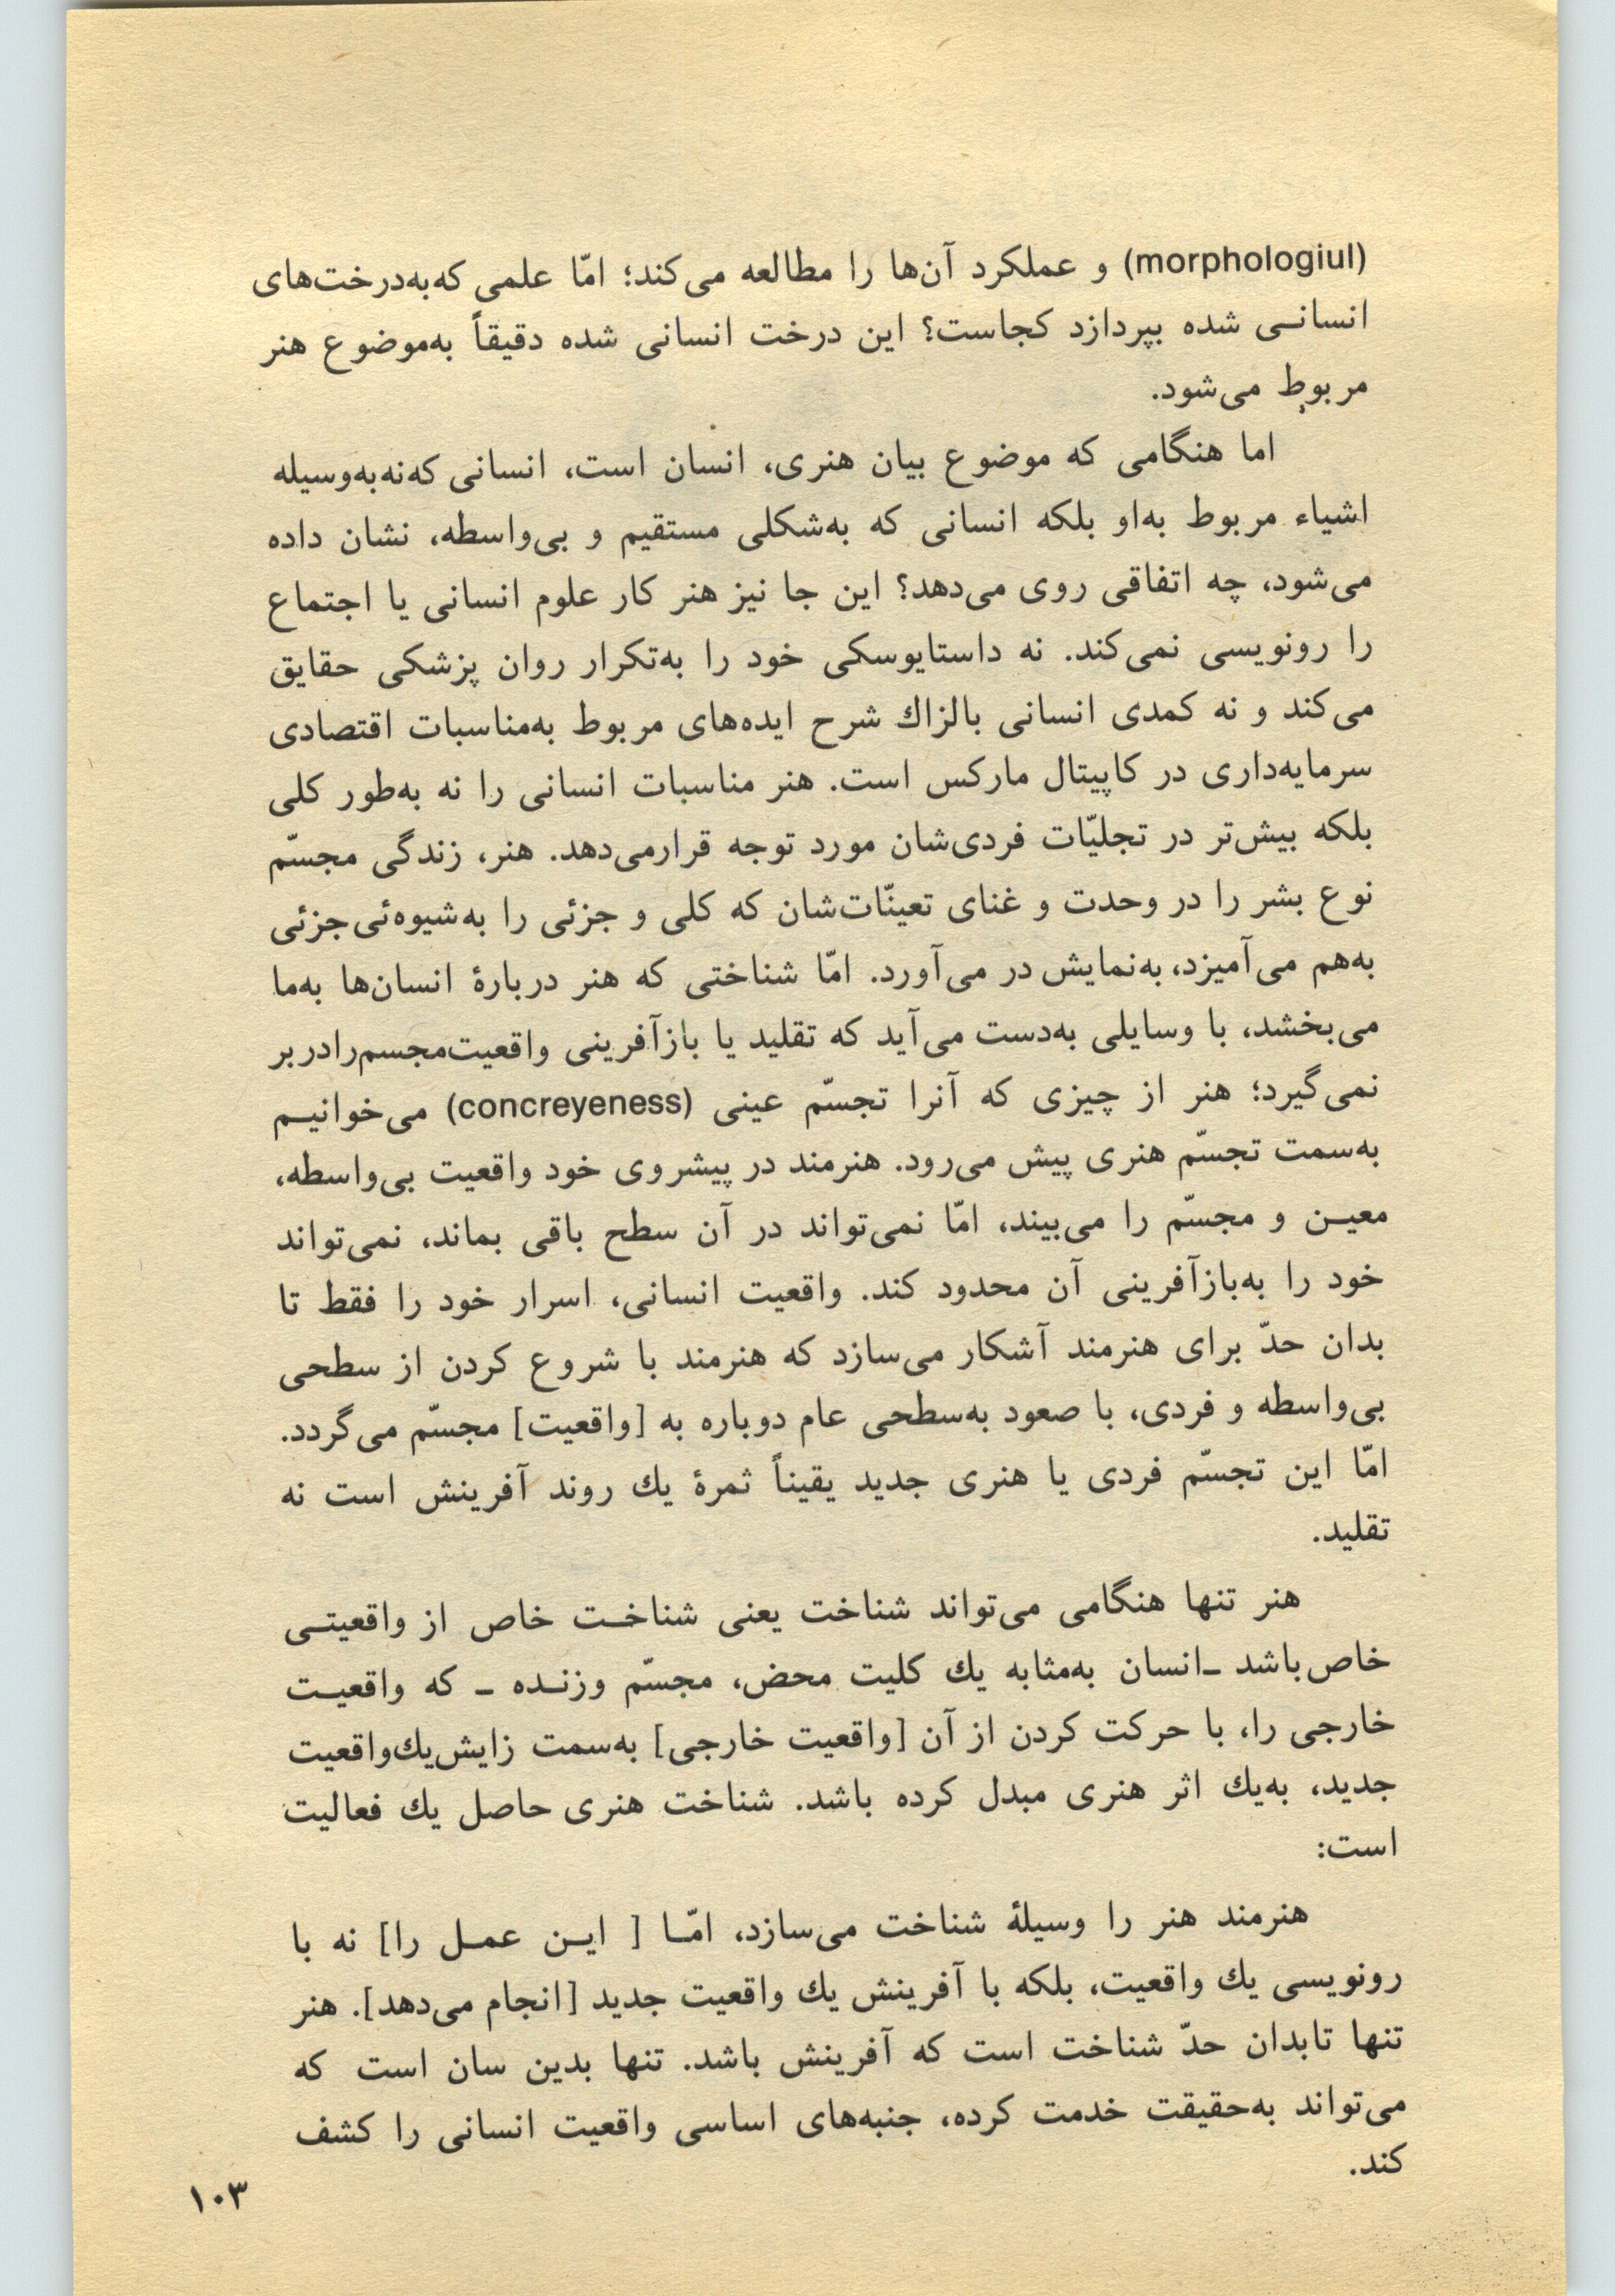 (morphologiul) و عملکرد آن‌ها را مطالعه می‌کند؛ امّا علمی که‌به‌درخت‌های
انسانـی شده بپردازد کجاست؟ این درخت انسانی شده دقیقاً به‌موضوع هنر
مربوط می‌شود.
اما هنگامی که موضوع بیان هنری، انسان است، انسانی که‌نه‌به‌وسیله
اشیاء مربوط به‌او بلکه انسانی که به‌شکلی مستقیم و بی‌واسطه، نشان داده
می‌شود، چه اتفاقی روی می‌دهد؟ این جا نیز هنر کار علوم انسانی یا اجتماع
را رونویسی نمی‌کند. نه داستایوسکی خود را به‌تکرار روان پزشکی حقایق
می‌کند و نه کمدی انسانی بالزاك شرح ایده‌های مربوط به‌مناسبات اقتصادی
سرمایه‌داری در کاپیتال مارکس است. هنر مناسبات انسانی را نه به‌طور کلی
بلکه بیش‌تر در تجلیّات فردی‌شان مورد توجه قرارمی‌دهد. هنر، زندگی مجسّم
نوع بشر را در وحدت و غنای تعینّات‌شان که کلی و جزئی را به‌شیوه‌ئی‌جزئی
به‌هم می‌آمیزد، به‌نمایش در می‌آورد. امّا شناختی که هنر دربارۀ انسان‌ها به‌ما
می‌بخشد، با وسایلی به‌دست می‌آید که تقلید یا بازآفرینی واقعیت‌مجسم‌رادر‌بر
نمی‌گیرد؛ هنر از چیزی که آنرا تجسّم عینی (concreyeness) می‌خوانیـم
به‌سمت تجسّم هنری پیش می‌رود. هنرمند در پیشروی خود واقعیت بی‌واسطه،
معیـن و مجسّم را می‌بیند، امّا نمی‌تواند در آن سطح باقی بماند، نمی‌تواند
خود را به‌بازآفرینی آن محدود کند. واقعیت انسانی، اسرار خود را فقط تا
بدان حدّ برای هنرمند آشکار می‌سازد که هنرمند با شروع کردن از سطحی
بی‌واسطه و فردی، با صعود به‌سطحی عام دوباره به [واقعیت] مجسّم می‌گردد.
امّا این تجسّم فردی یا هنری جدید یقیناً ثمرۀ یك روند آفرینش است نه
تقلید.
هنر تنها هنگامی می‌تواند شناخت یعنی شناخـت خاص از واقعیتـی
خاص‌باشد ـ‌انسان به‌مثابه یك کلیت محض، مجسّم وزنـده ـ که واقعیـت
خارجی را، با حرکت کردن از آن [واقعیت خارجی] به‌سمت زایش‌یك‌واقعیت
جدید، به‌یك اثر هنری مبدل کرده باشد. شناخت هنری حاصل یك فعالیت
است:
هنرمند هنر را وسیلۀ شناخت می‌سازد، امّـا [ ایـن عمـل را] نه با
رونویسی یك واقعیت، بلکه با آفرینش یك واقعیت جدید [انجام می‌دهد]. هنر
تنها تابدان حدّ شناخت است که آفرینش باشد. تنها بدین سان است که
می‌تواند به‌حقیقت خدمت کرده، جنبه‌های اساسی واقعیت انسانی را کشف
کند.
۱۰۳